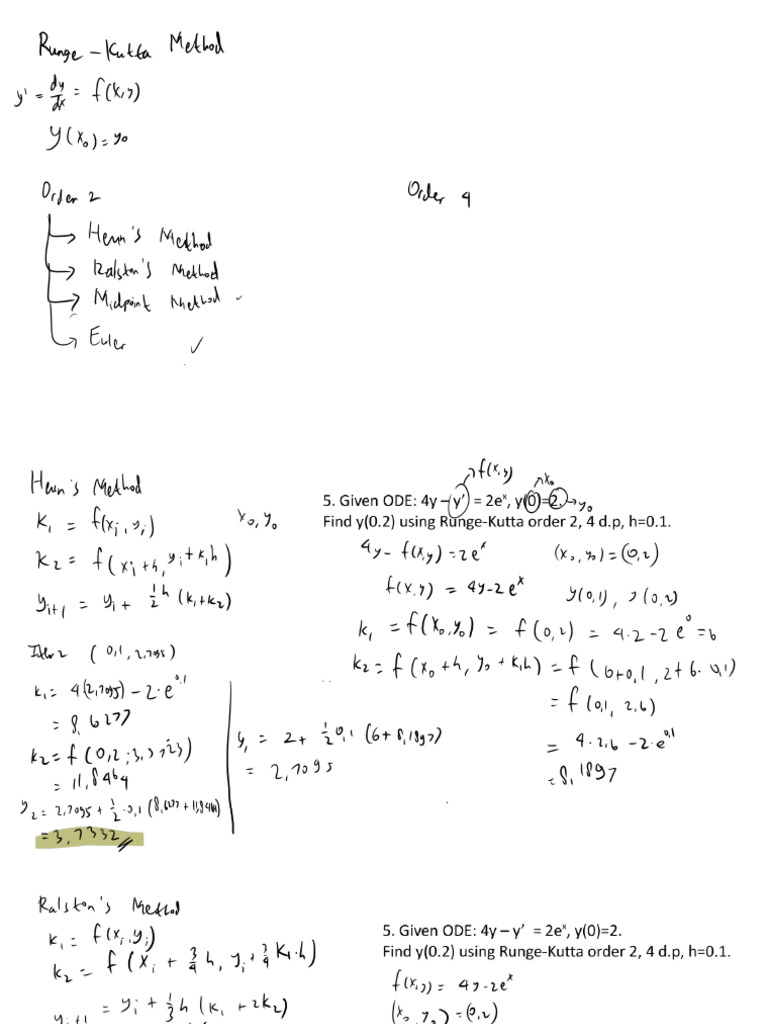 Runge - Kutta Method
y' = dy/dx = f(x,y)
y(x₀) = y₀
Order 2
Order 4
Heun's Method
Ralston's Method
Midpoint Method ✓
Euler ✓
Heun's Method
k₁ = f(xᵢ, yᵢ)
k₂ = f(xᵢ+h, yᵢ+k₁h)
yᵢ₊₁ = yᵢ + 1/2 h (k₁+k₂)
x₀, y₀
→ f(x,y)
→ x₀
5. Given ODE: 4y – y' = 2eˣ, y(0)=2. → y₀
Find y(0.2) using Runge-Kutta order 2, 4 d.p, h=0.1.
4y - f(x,y) = 2eˣ
(x₀, y₀) = (0,2)
f(x,y) = 4y - 2eˣ
y(0,1), y(0,2)
k₁ = f(x₀,y₀) = f(0,2) = 4·2 - 2e⁰ = 6
k₂ = f(x₀+h, y₀+k₁h) = f(0+0,1, 2+6·0,1)
= f(0,1, 2,6)
= 4·2,6 - 2·e^0,1
= 8,1897
y₁ = 2 + 1/2 0,1 (6+8,1897)
= 2,7095
Iter 2 (0,1, 2,7095)
k₁ = 4(2,7095) - 2·e^0,1
= 8,6277
k₂ = f(0,2; 3,5723)
= 11,8464
y₂ = 2,7095 + 1/2·0,1 (8,6277 + 11,8464)
= 3,7332
Ralston's Method
k₁ = f(xᵢ, yᵢ)
k₂ = f(xᵢ + 3/4 h, yᵢ + 3/4 k₁·h)
yᵢ₊₁ = yᵢ + 1/3 h (k₁ + 2k₂)
5. Given ODE: 4y – y' = 2eˣ, y(0)=2.
Find y(0.2) using Runge-Kutta order 2, 4 d.p, h=0.1.
f(x,y) = 4y - 2eˣ
(x₀, y₀) = (0,2)